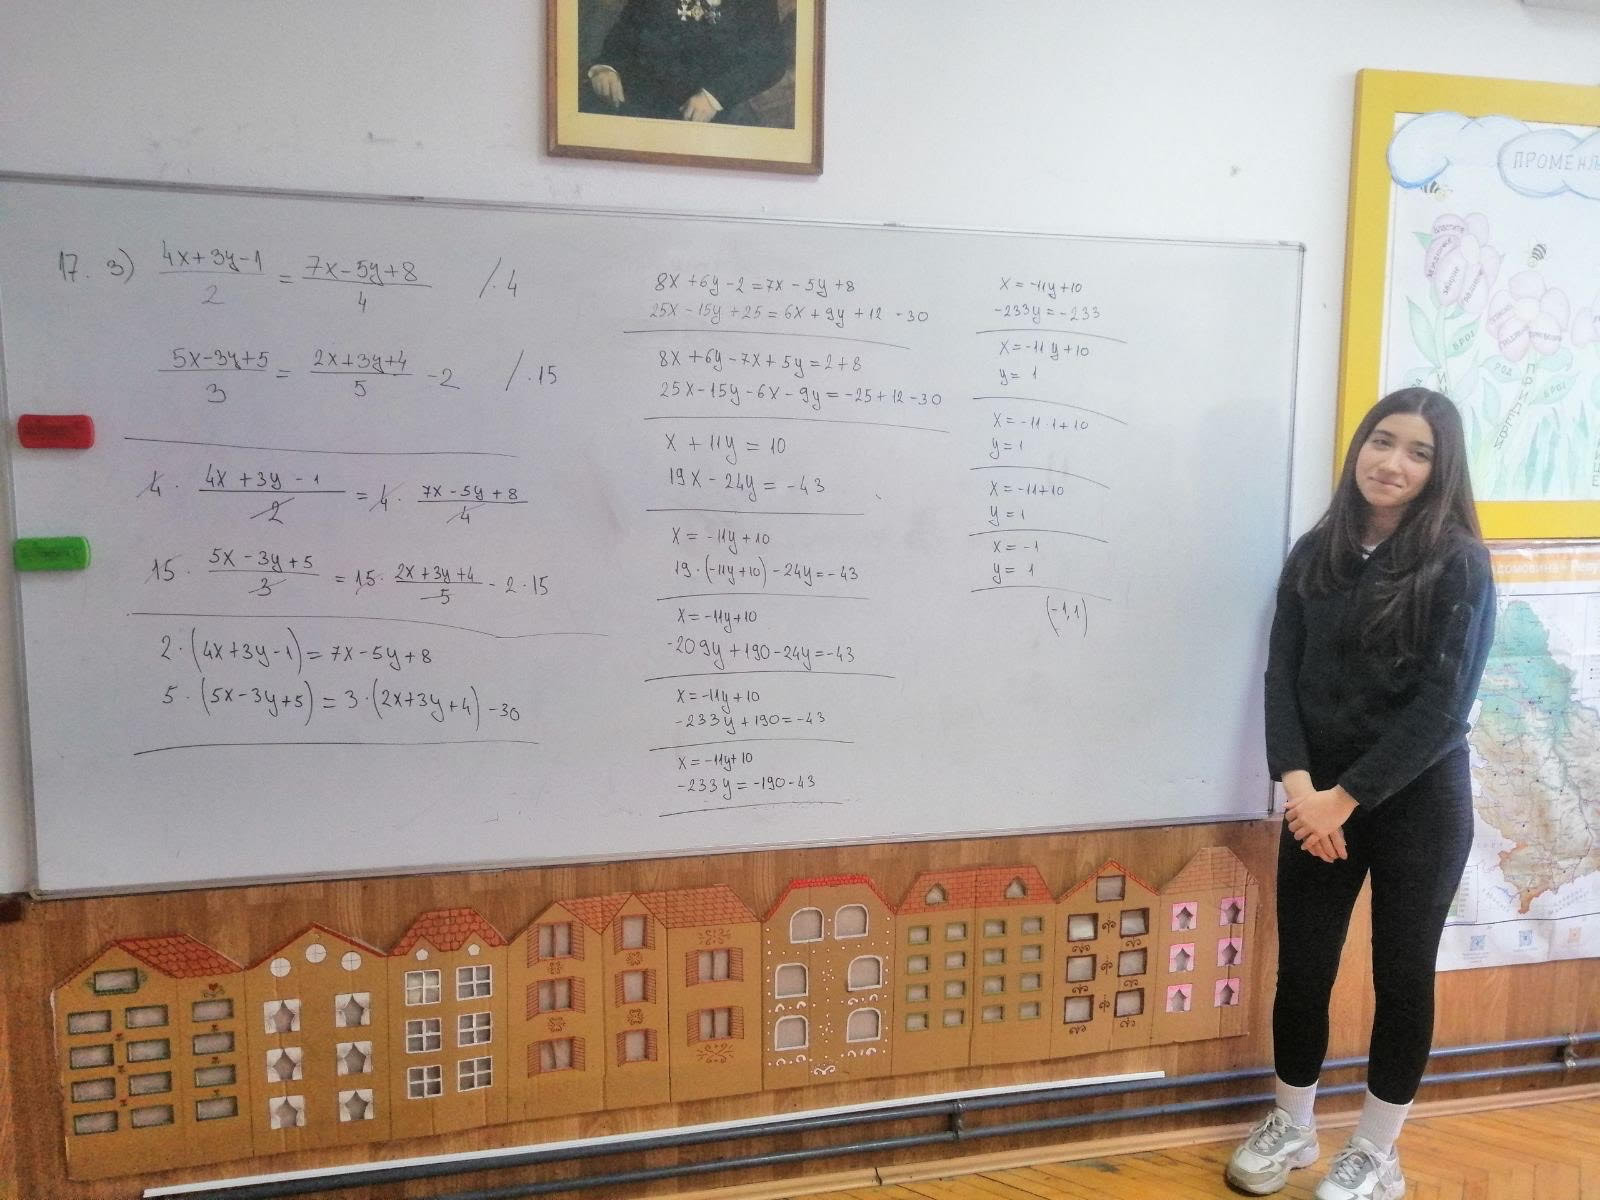 17. 3) (4x+3y-1)/2 = (7x-5y+8)/4 /·4
(5x-3y+5)/3 = (2x+3y+4)/5 -2 /·15
4· (4x+3y-1)/2 = 4· (7x-5y+8)/4
15· (5x-3y+5)/3 = 15· (2x+3y+4)/5 - 2·15
2·(4x+3y-1)=7x-5y+8
5·(5x-3y+5)=3·(2x+3y+4)-30
8x+6y-2=7x-5y+8
25x-15y+25=6x+9y+12-30
8x+6y-7x+5y=2+8
25x-15y-6x-9y=-25+12-30
x+11y=10
19x-24y=-43
x=-11y+10
19·(-11y+10)-24y=-43
x=-11y+10
-209y+190-24y=-43
x=-11y+10
-233y+190=-43
x=-11y+10
-233y=-190-43
x=-11y+10
-233y=-233
x=-11y+10
y=1
x=-11·1+10
y=1
x=-11+10
y=1
x=-1
y=1
(-1,1)
ПРОМЕНЉ
РОД
РОД
БРОЈ